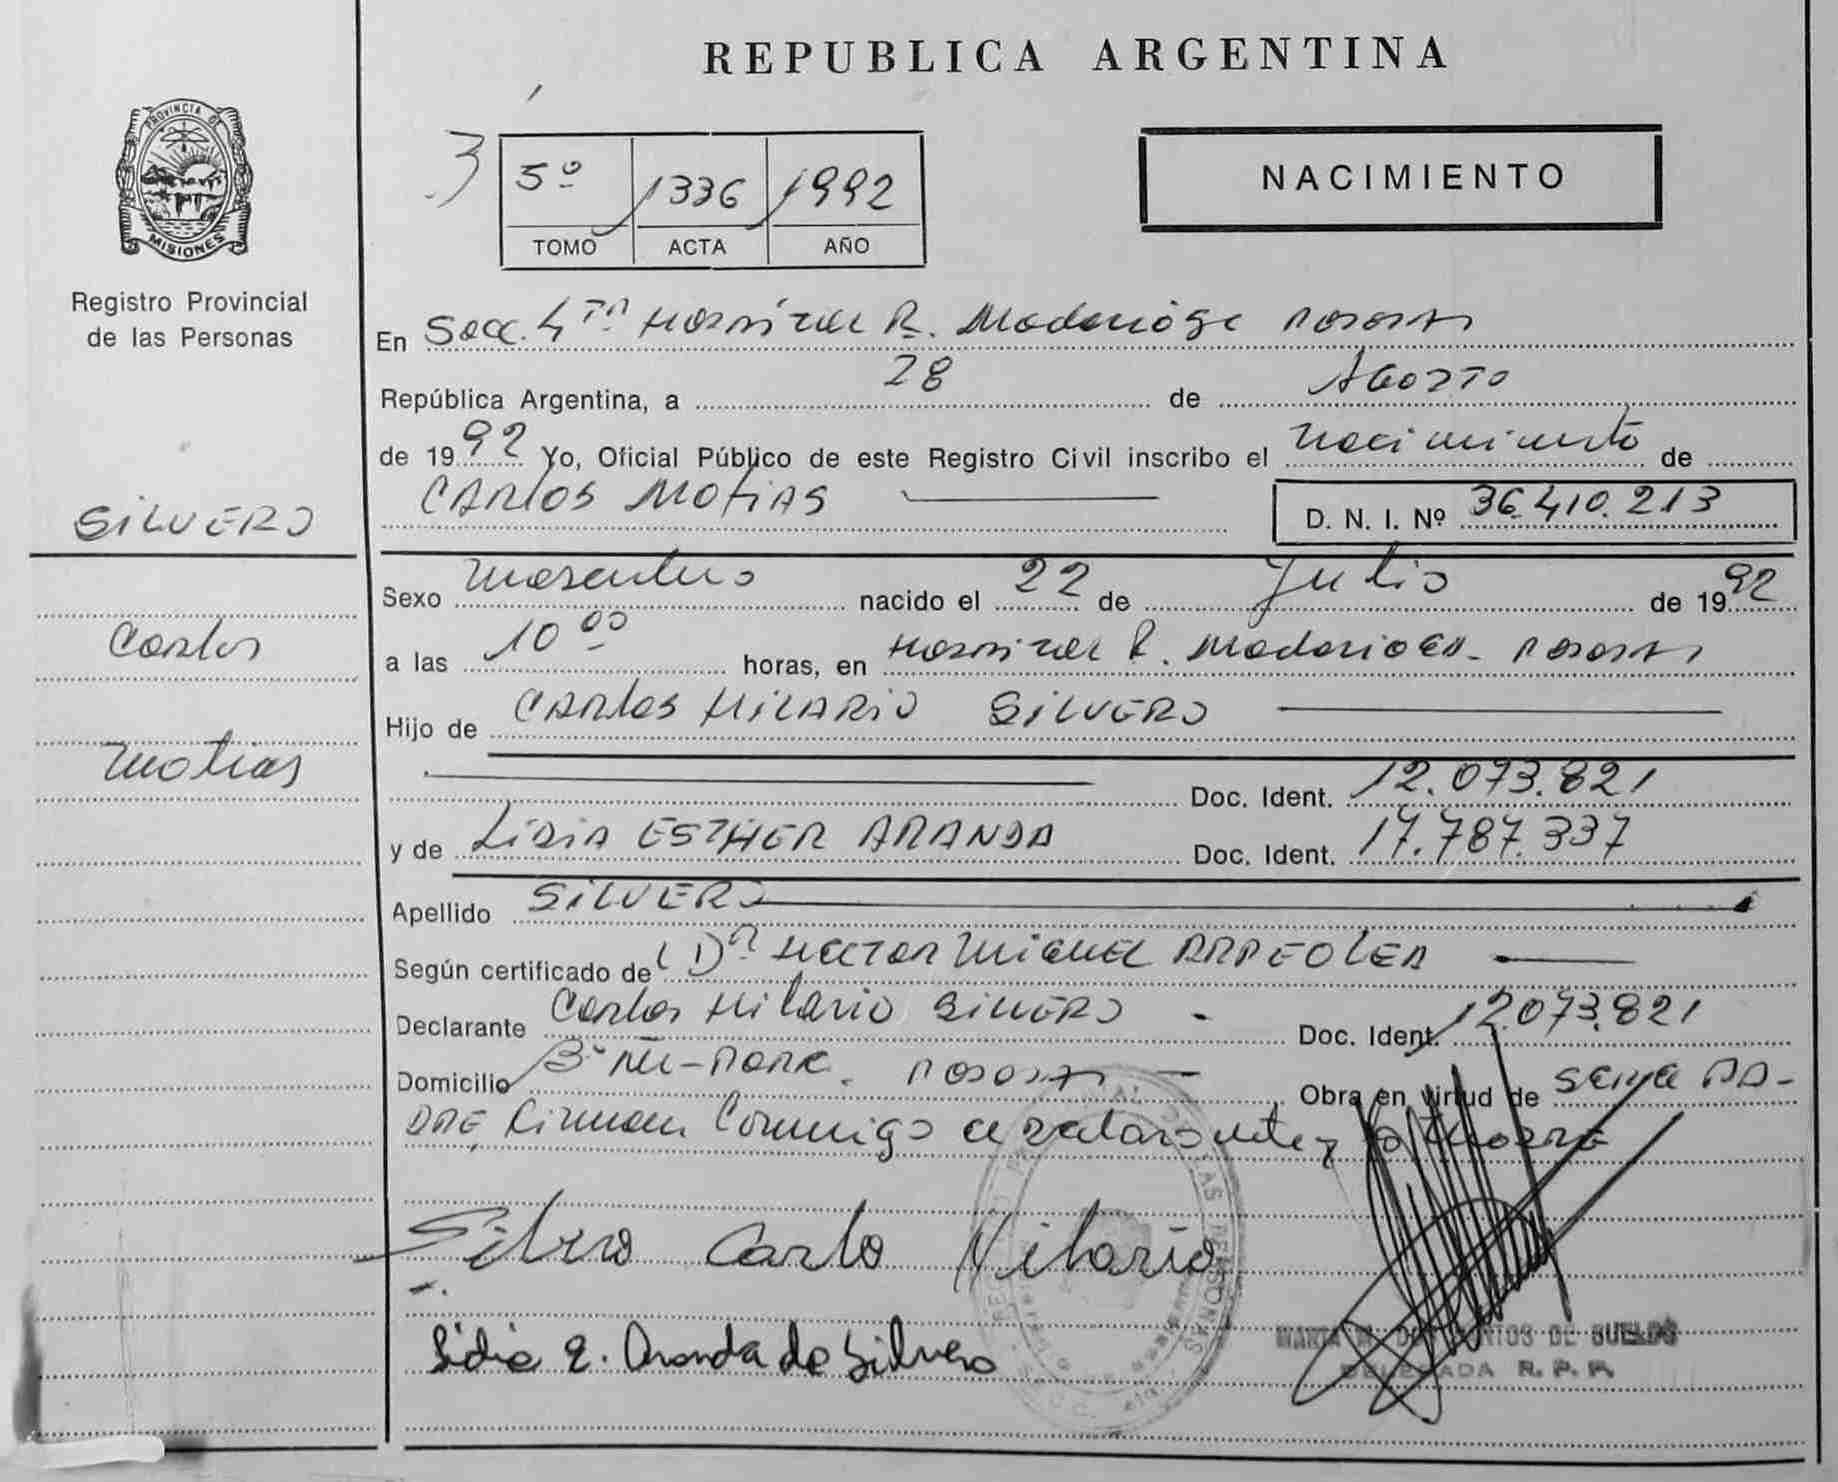 REPUBLICA ARGENTINA
PROVINCIA DE
MISIONES
Registro Provincial
de las Personas
3
5º 1336 1992
TOMO ACTA AÑO
NACIMIENTO
En Secc. 4ta Hospital R. Madariaga Posadas
República Argentina, a 28 de Agosto
de 1992 Yo, Oficial Público de este Registro Civil inscribo el nacimiento de
CARLOS MATIAS D. N. I. Nº 36.410.213
SILVERO
Carlos
Matias
Sexo masculino nacido el 22 de Julio de 1992
a las 10 00 horas, en Hospital R. Madariaga - Posadas
Hijo de CARLOS HILARIO SILVERO
Doc. Ident. 12.073.821
y de LIDIA ESTHER ARANDA Doc. Ident. 17.787.337
Apellido SILVERO
Según certificado de (Dr HECTOR MIGUEL
Declarante Carlos Hilario SILVERO - Doc. Ident. 12.073.821
Domicilio Posadas - Obra en virtud de ser el PA-
DRE, Firman Conmigo el declarante y la MADRE
Silvero Carlo Hilario
Lidia E. Aranda de Silvero
DE SUELDO
DELEGADA R. P. P.